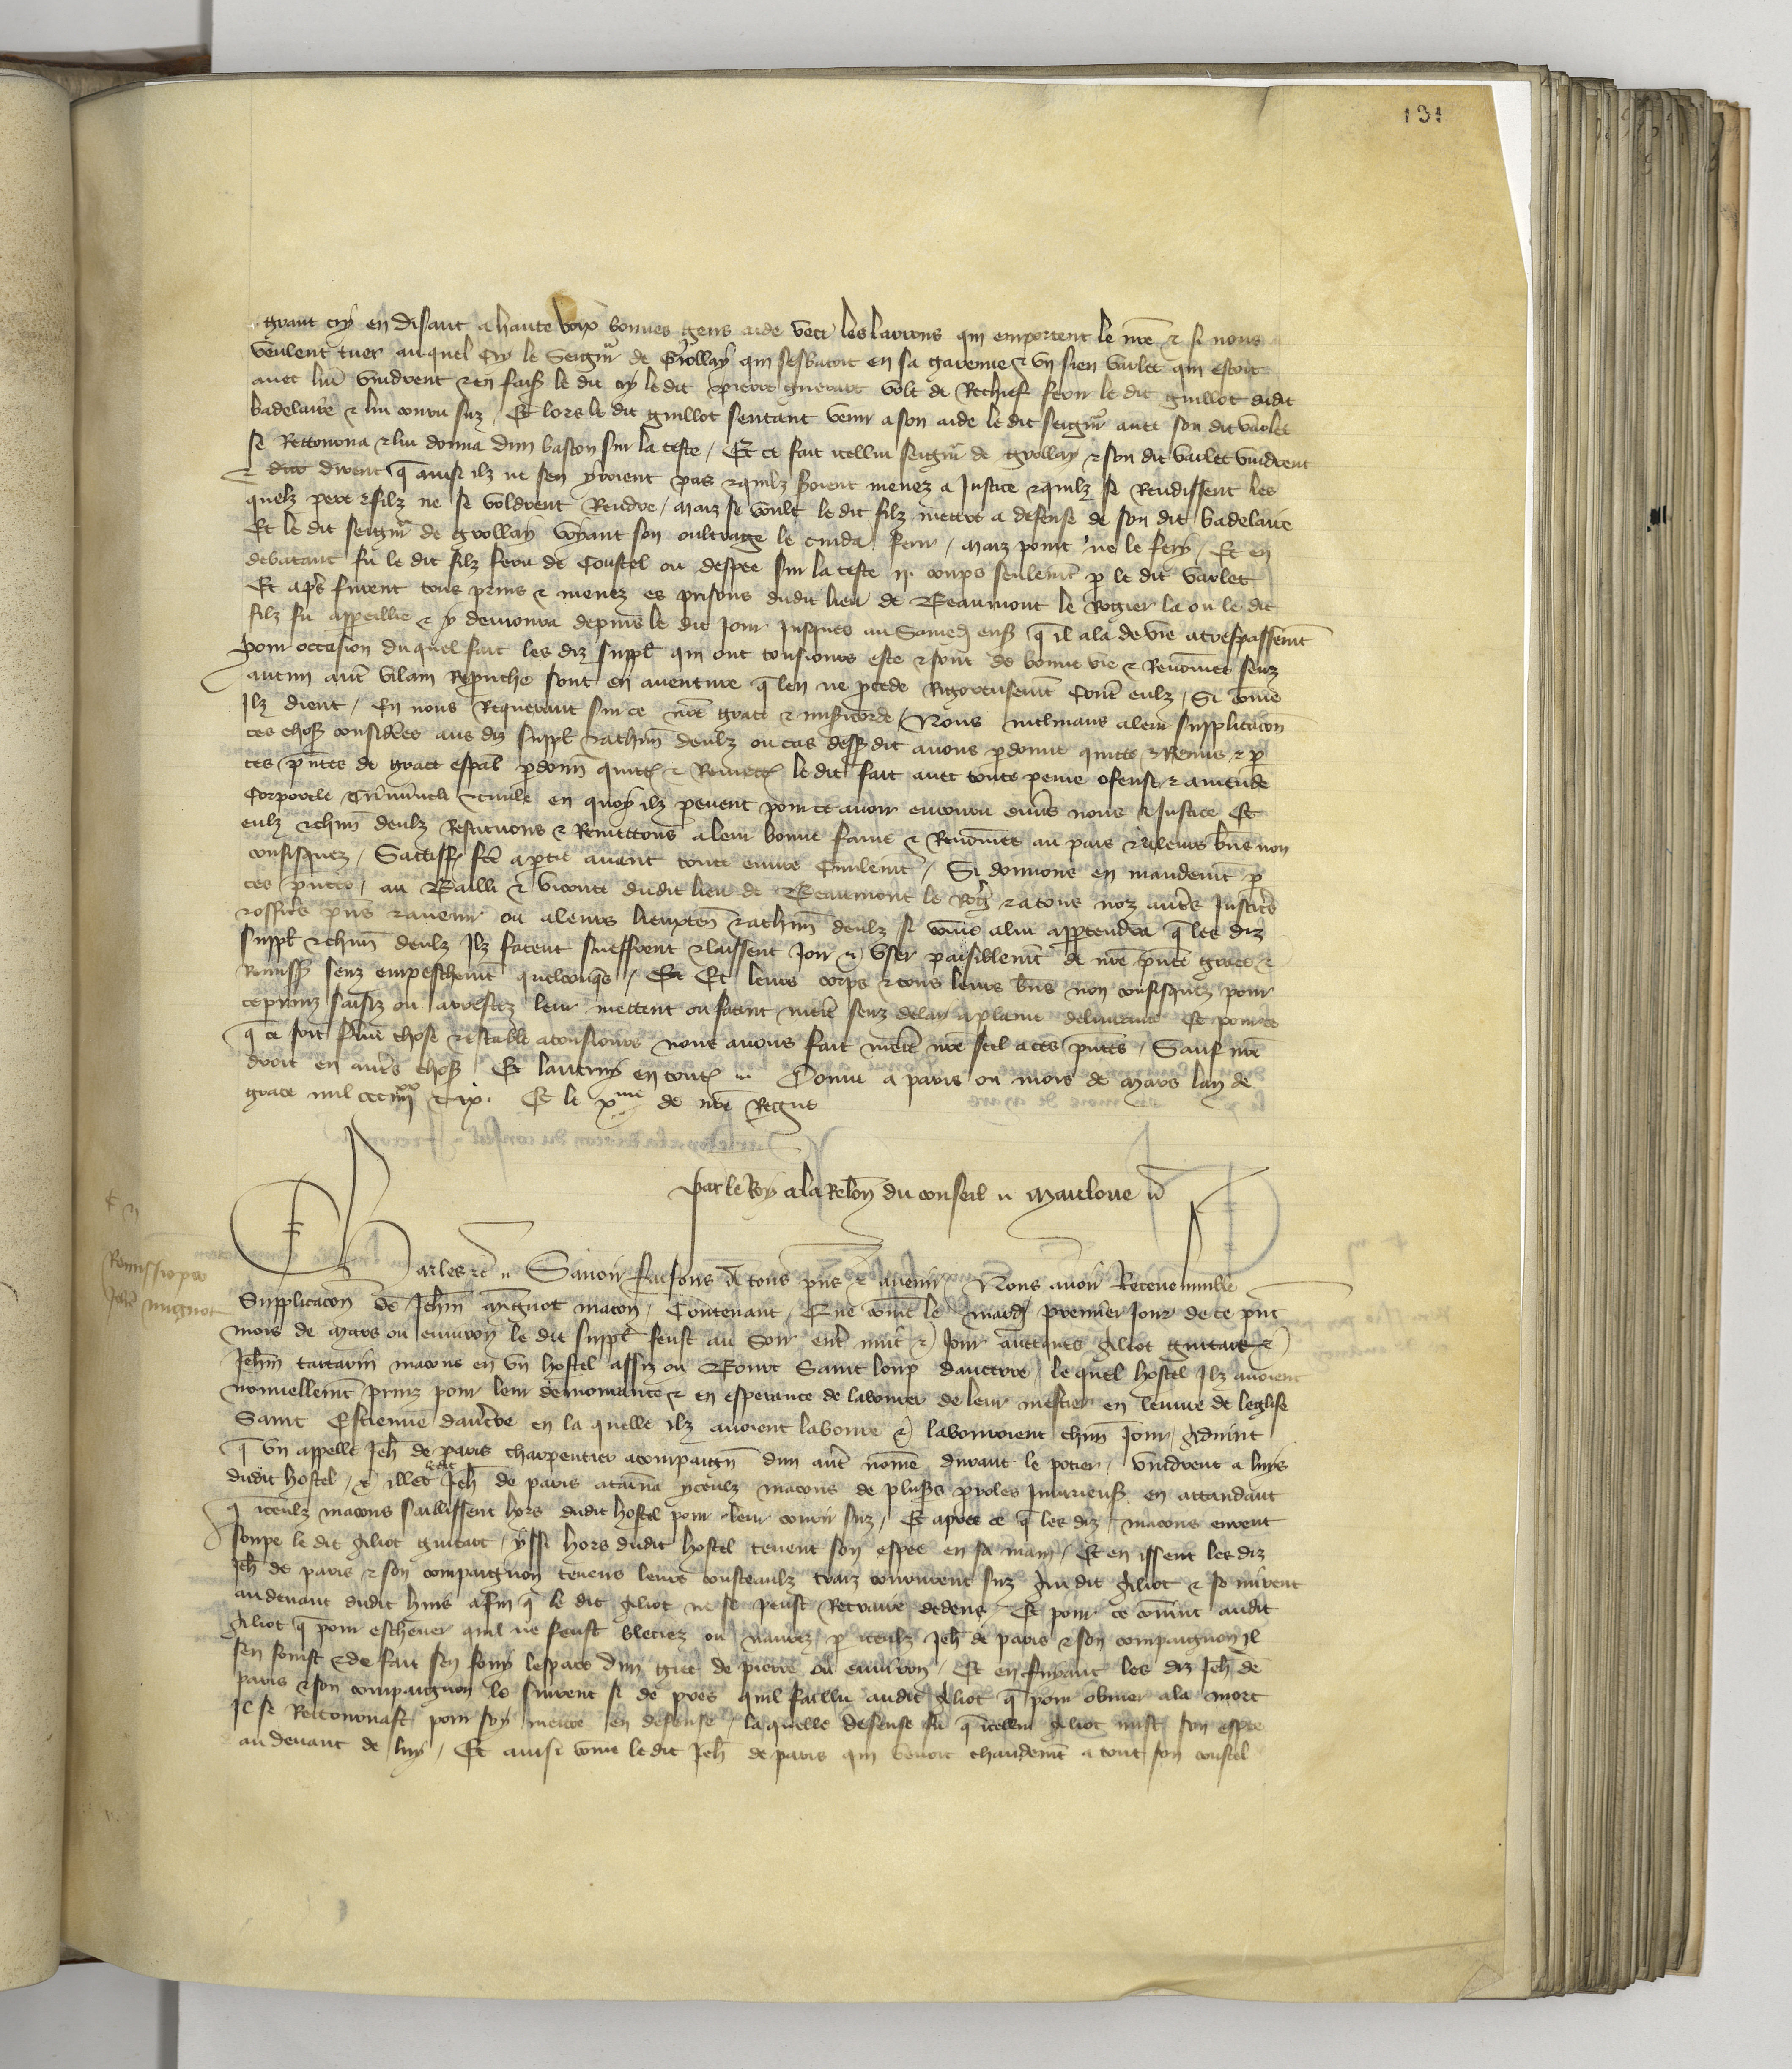 131
grant cry en disant a haute voix bonnes gens aide veci les larrons qui emportent le nre & si nous
veulent tuer auquel cry le Seigneur de Grollay qui sesbatoit en sa garenne & un sien varlet qui estoit
avec lui vindrent & en fais le dit cry le dit pierre guerart volt de Rechief ferir le dit guillot dudit
badelaire & lui couru suz / Et lors le dit guillot sentant venir a son aide le dit seigneur avec son dit varlet
se Retourna & lui donna dun baston sur la teste / Et ce fait icellui seigneur de grollay & son dit varlet vindrent
& dirent q ainsi ilz ne sen yroient pas & quilz seroient menez a Justice & quilz se Rendissent les
quelz pere & filz ne se voldrent Rendre / maiz se voult le dit filz mettre a defense de son dit badelaire
Et le dit seigneur de grollay voyant son oultrage le cuida ferir / maiz point ne le fery / Et en
debatant fu le dit filz feru de Coustel ou despee sur la teste ii coups seulemt p le dit varlet
Et aprs furent tous prins & menez es prisons dudit lieu de Beaumont le Rogier la ou le dit
filz fu appeillie & y demoura depuis le dit Jour Jusques au Samedi ens q il ala de vie a trespassemt
pour occasion du quel fait les diz suppl qui ont tousiours este & sont de bonne vie & Renommee senz
aucun autre vilain Reprouche sont en aventure q len ne procede Rigoreusemt Contre eulz / Si comme
Ilz dient / En nous Requerant sur ce nre grace & misericorde / Nous inclinans a leur supplicacon
ces choses considerees aus diz suppl & a chun deulz ou cas dessus dit avons pdonne quicte & Remis & p
ces pntes de grace espal pdonn quict & Remect le dit fait avec toute peine ofense & amende
Corporele Criminele & civile en quoy ilz pevent pour ce avoir encouru envrs nous & Justice Et
eulz & chun deulz Restituons & Remettons a leur bonne fame & Renommee au pais & a leurs bns non
confisquez / Satisf fce a ptie avant toute euvre Civilemt / Si donnons en mandemt p
ces pntes / au Bailli & viconte dudit lieu de Beaumont le Rog & a tous noz autrs Justicrs
& officrs pns & a venir ou a leurs lieuxten & a chun deulz si comme a lui appartendra q les diz
suppl & chun deulz Ilz facent sueffrent & laissent Joir & user paisiblemt de nre pnte grace &
Remiss senz empeschemt quelconqs / Et Et leurs corps & tous leurs bns non confisquez pour
ce prins saisiz ou arrestez leur mettent ou facent mettre senz delay a plaine delivrance Et pour ce
q ce soit ferme chose & estable a tousiours nous avons fait mettre nre scel a ces pntes / Sauf nre
droit en autrs choses / Et lautruy en tout Donne a paris ou mois de mars lan de
grace mil ccc iiij xx & ix. Et le xme de nre Regne
par le Roy a la Relon du conseil Mauloue
Remissio pro
Johe mignot
Charles &c Savoir faisons A tous pns & avenir / Nous avoir Receue humble
Supplicacon de Jehan mignot macon / Contenant / Que comme le mardi premier Jour de ce pnt
mois de mars ou environ le dit suppl feust au Soir entre nuit & Jour avecques Giliot guitart &
Jehan tartarin macons en un hostel assiz ou Bourc Saint loup daucerre / le quel hostel Ilz avoient
nouvellemt prins pour leur demourance & en esperance de labourer de leur mestier en leuvre de leglise
Saint Estienne daucerre en la quelle ilz avoient laboure & labouroient chun Jour / Advint
q un appelle Jeh de paris charpentier acompaign dun autre nomme durant le potier / vindrent a luis
dudit hostel / & illec ledit Jeh de paris ataina yceulz macons de plusrs paroles Injurieuses en attandant
q iceulz macons saillissent hors dudit hostel pour leur courir suz / Et apres ce q les diz macons eurent
soupe le dit Giliot guitart / yssi hors dudit hostel tenent son espee en sa main / Et en issent les diz
Jeh de paris & son compaignon tenens leurs cousteaulx traiz coururent suz audit Giliot & se mirent
au devant dudit huis afin q le dit Giliot ne se peust Retraire dedens / Et pour ce convint audit
Giliot q pour eschever quil ne feust bleciez ou navrez p iceulz Jeh de paris & son compaignon Il
sen fouist & de fait sen fouy lespace dun giet de pierre ou environ / Et en fuiant les diz Jeh de
paris & son compaignon le suirent si de pres quil failli audit Giliot q pour obvier a la mort
Il se Retournast pour soy mettre en defense / la quelle defense fu q icellui Giliot mist son espee
au devant de luy / Et ainsi comme le dit Jeh de paris qui venoit chaudemt a tout son coustel